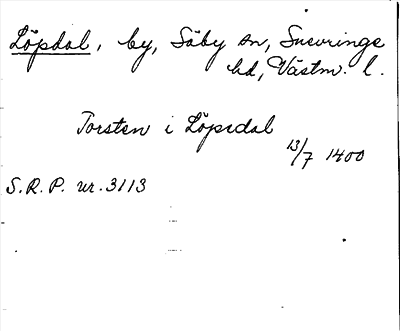 Löpdal, by, Säby sn, Snevringe
hd, Västm. l.
Torsten i Löpsdal
13/7 1400
S.R.P. nr. 3113